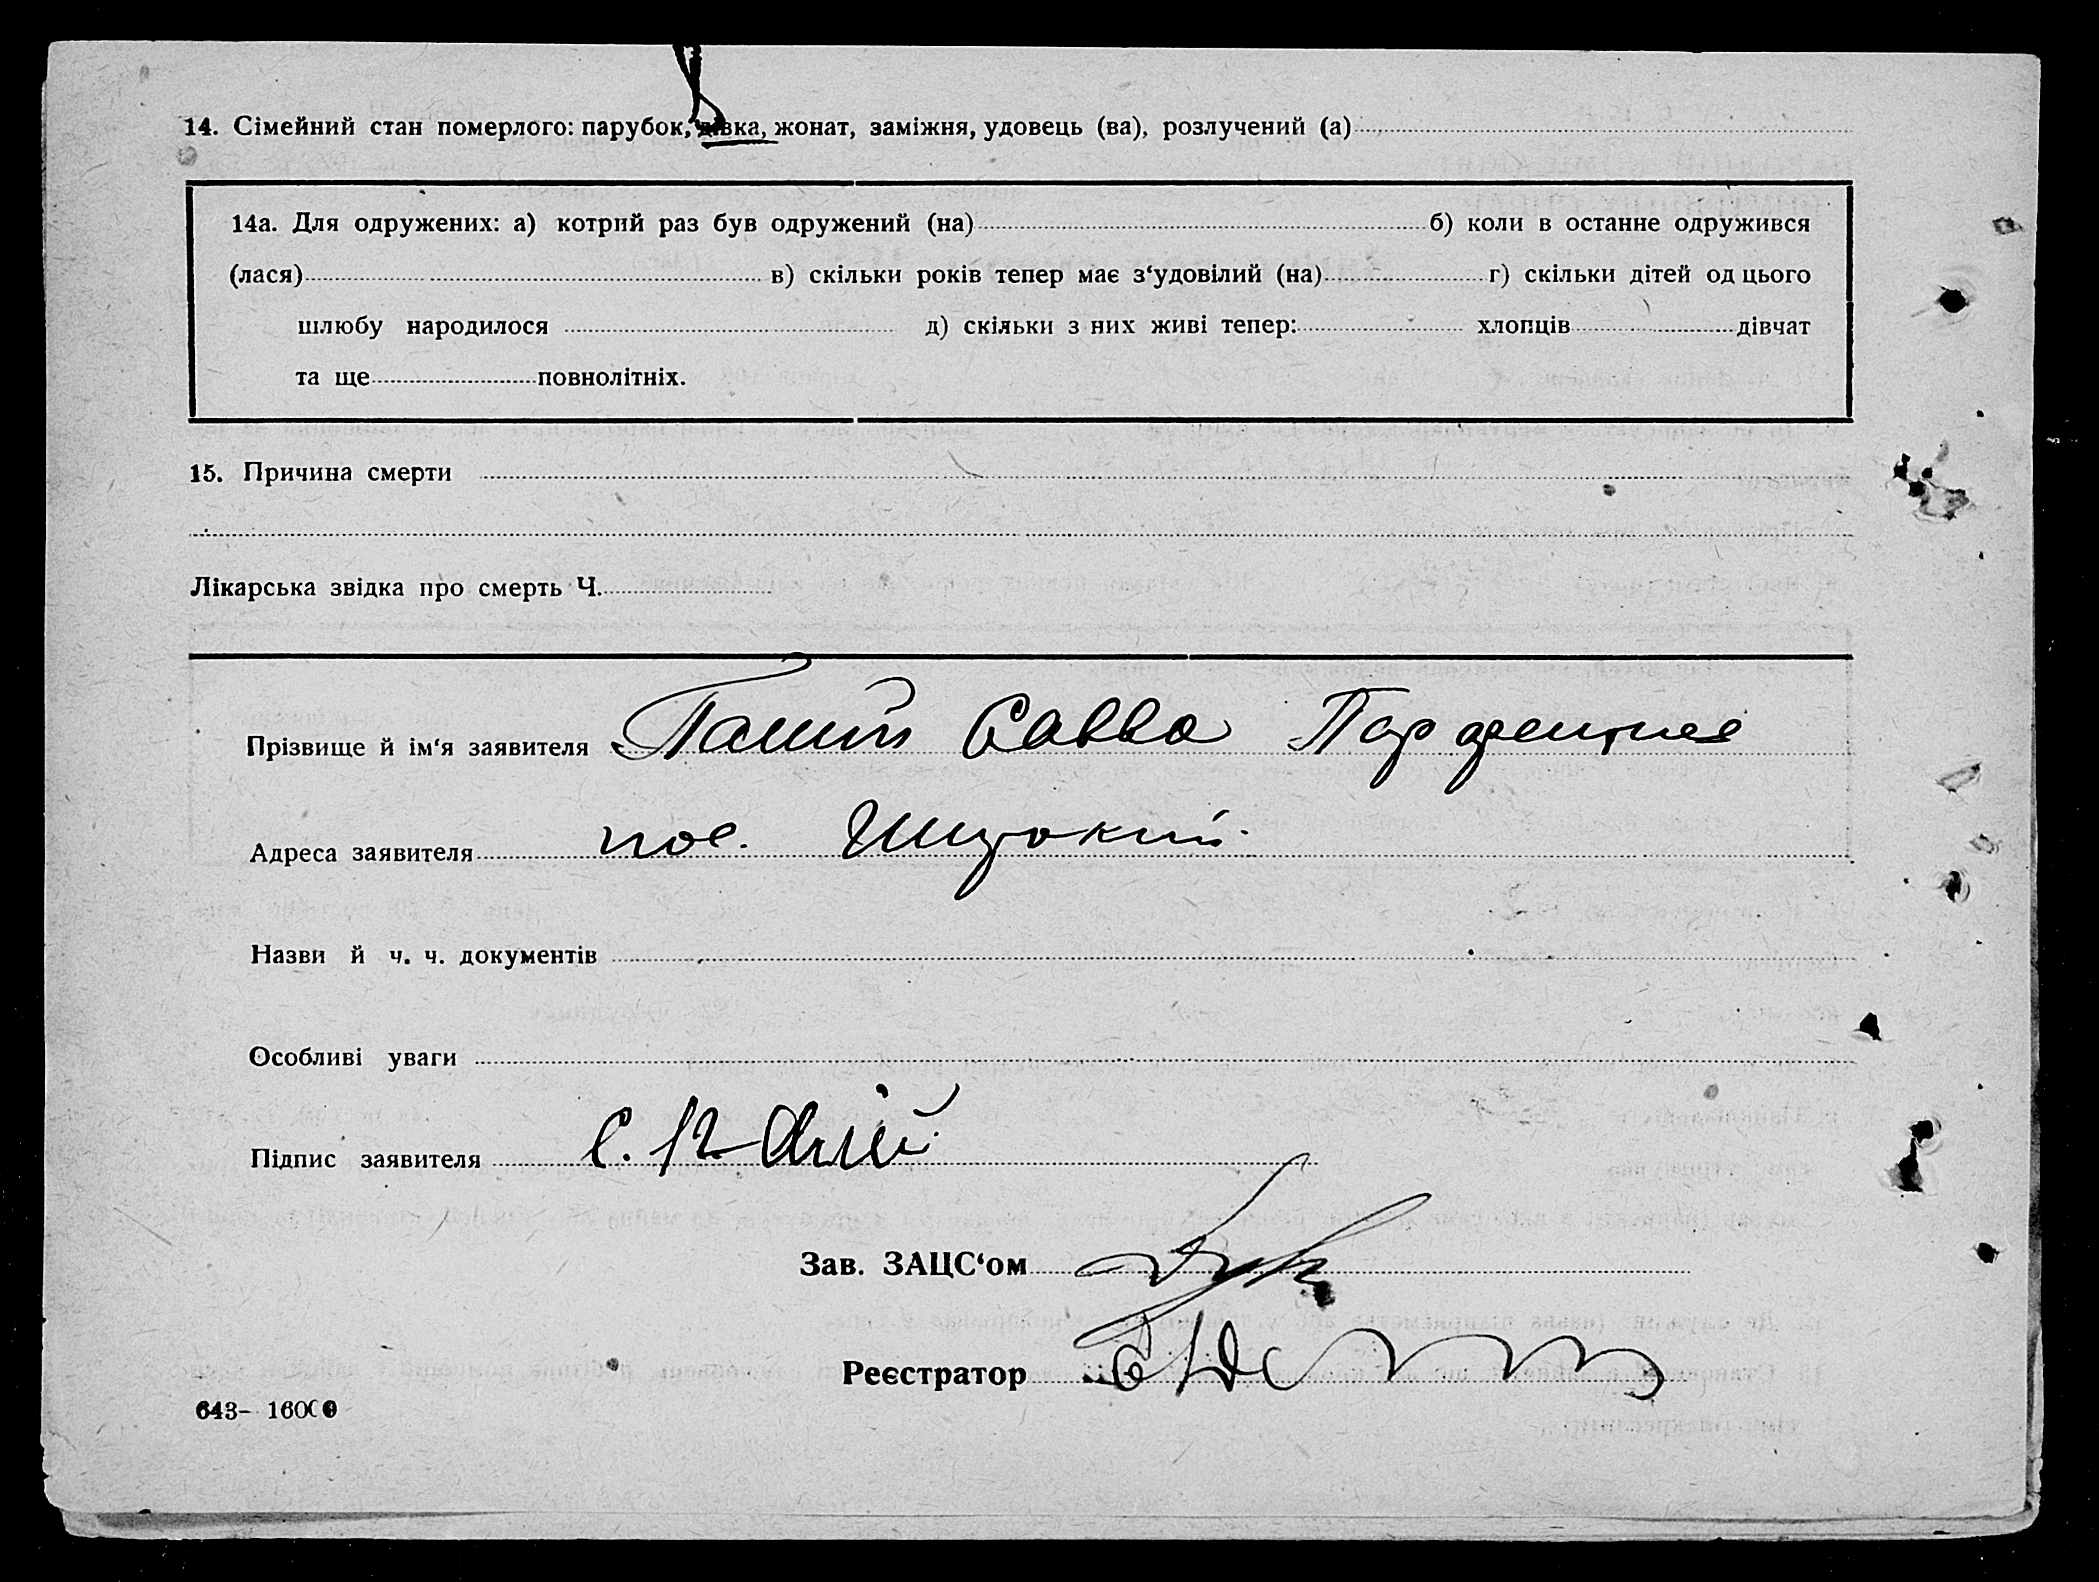 14. Сімейний стан померлого: парубок, дівка, жонат, заміжня, удовець (ва), розлучений (а)
14а. Для одружених: а) котрий раз був одружений (на) б) коли в останне одружився
(лася) в) скільки років тепер має з‘удовілий (на) г) скільки дітей од цього
шлюбу народилося д) скільки з них живі тепер: хлопців дівчат
та ще повнолітніх.
15. Причина смерти
Лікарська звідка про смерть Ч.
Прізвище й ім‘я заявителя Савва
Адреса заявителя пос. Широкий
Назви й ч. ч. документів
Особливі уваги
Підпис заявителя
Зав. ЗАЦС‘ом
Реєстратор
643– 16000